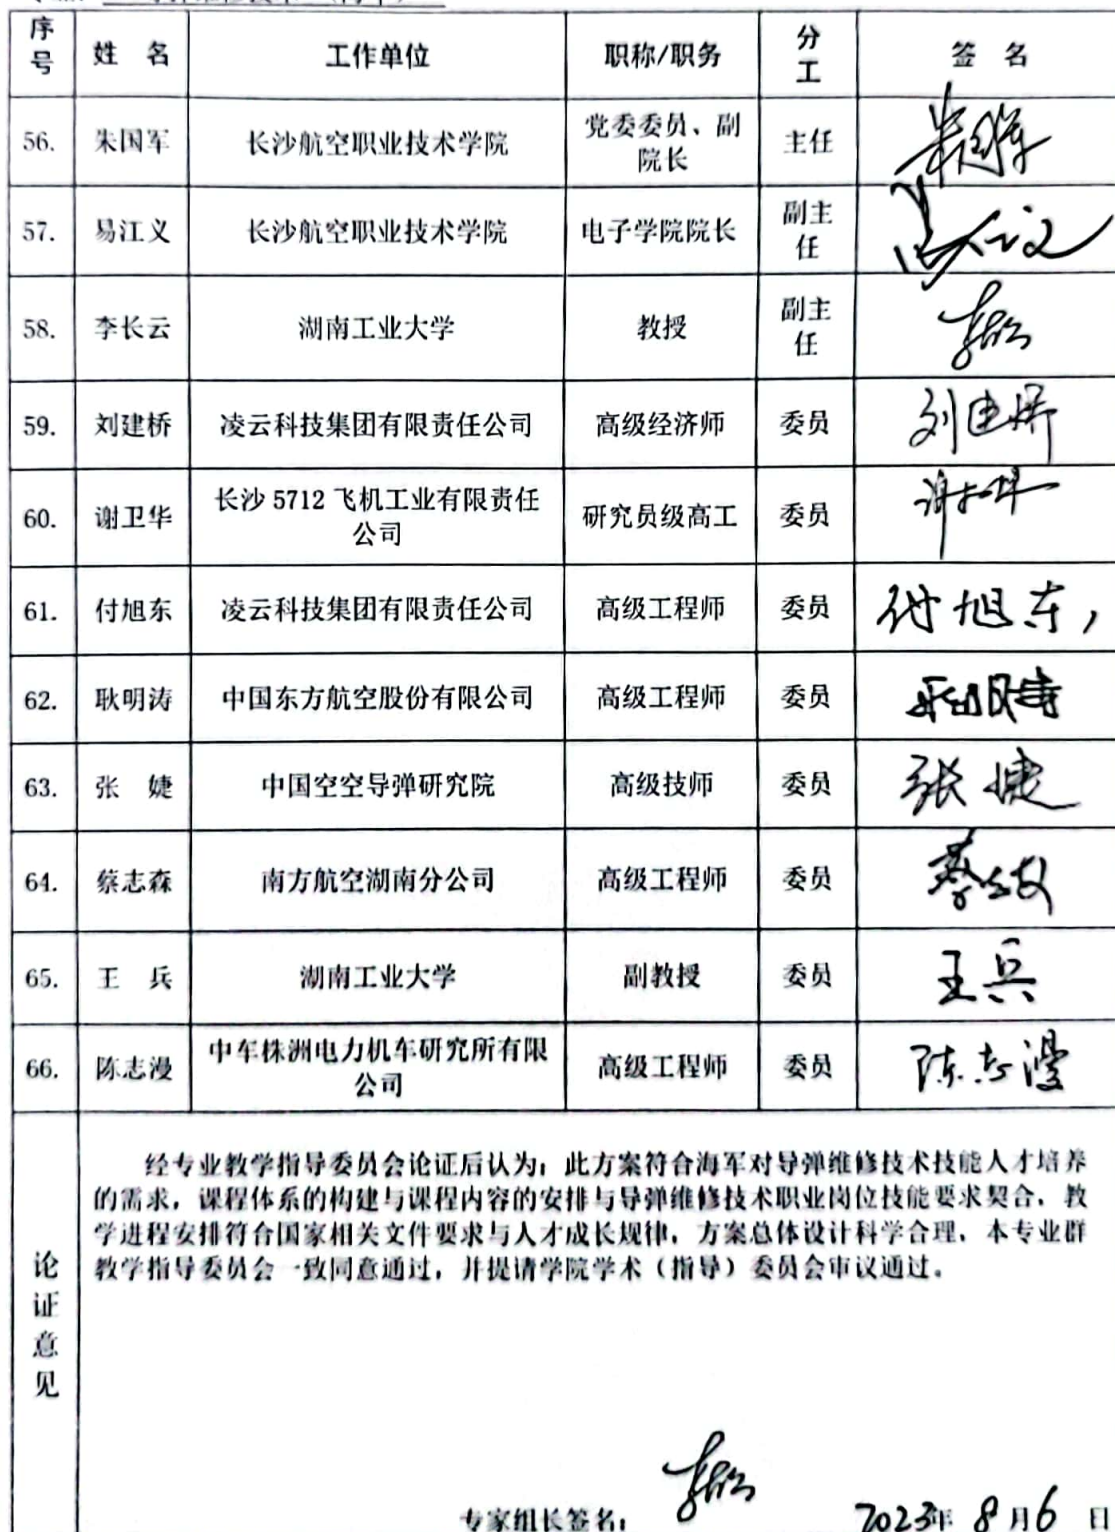 序号 姓 名 工作单位 职称/职务 分工 签 名
56. 朱国军 长沙航空职业技术学院 党委委员、副院长 主任
57. 易江义 长沙航空职业技术学院 电子学院院长 副主任
58. 李长云 湖南工业大学 教授 副主任
59. 刘建桥 凌云科技集团有限责任公司 高级经济师 委员 刘建桥
60. 谢卫华 长沙 5712 飞机工业有限责任公司 研究员级高工 委员
61. 付旭东 凌云科技集团有限责任公司 高级工程师 委员 付旭东
62. 耿明涛 中国东方航空股份有限公司 高级工程师 委员
63. 张 婕 中国空空导弹研究院 高级技师 委员 张婕
64. 蔡志森 南方航空湖南分公司 高级工程师 委员
65. 王 兵 湖南工业大学 副教授 委员 王兵
66. 陈志漫 中车株洲电力机车研究所有限公司 高级工程师 委员 陈志漫
论证意见
经专业教学指导委员会论证后认为：此方案符合海军对导弹维修技术技能人才培养
的需求，课程体系的构建与课程内容的安排与导弹维修技术职业岗位技能要求契合，教
学进程安排符合国家相关文件要求与人才成长规律，方案总体设计科学合理，本专业群
教学指导委员会一致同意通过，并提请学院学术（指导）委员会审议通过。
专家组长签名： 2023年 8月6 日